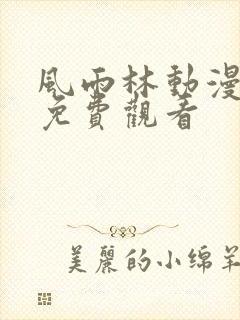 風雨林動漫
免費觀看
美麗的小绵羊